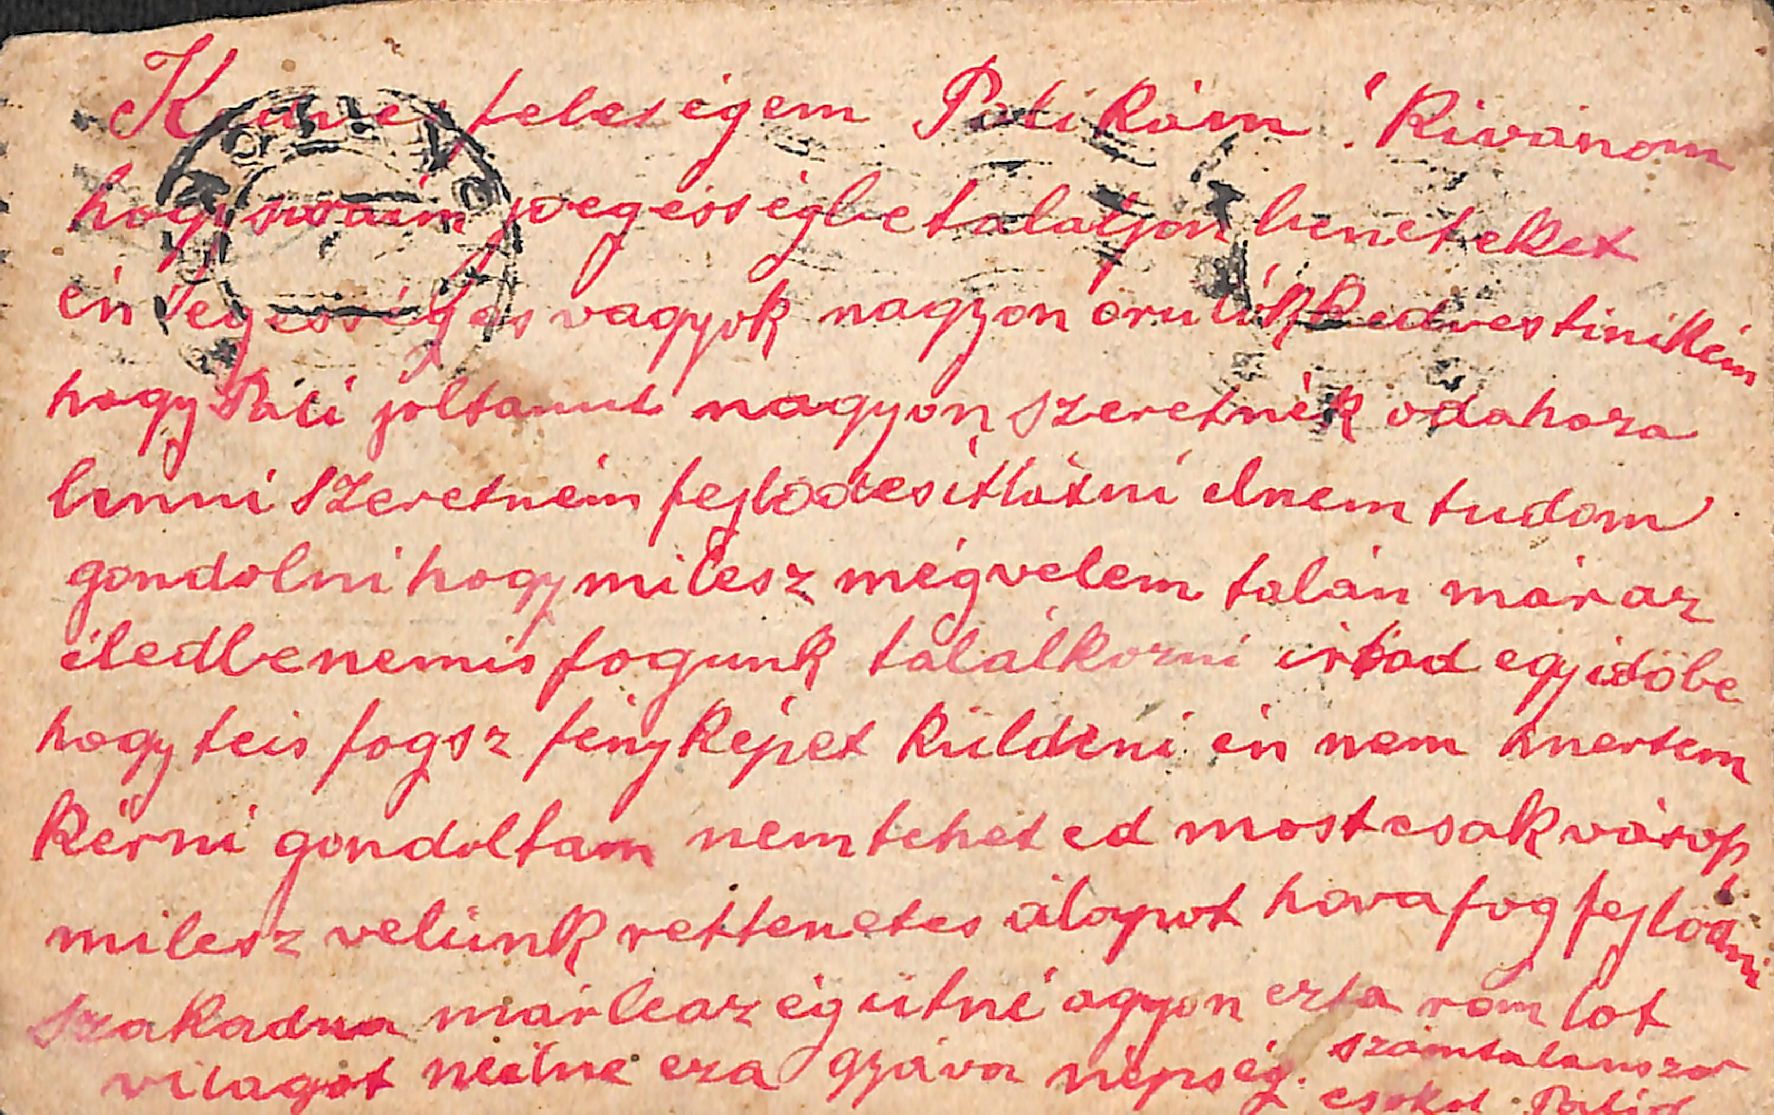 Kedves feleségem Patikám! Kivánom
hogy soraim joegésségbe talatjon beneteket
én egésséges vagyok nagyon örulök kedves tinikém
hogy Pati joltanul nagyon szeretnék odahaza
lenni szeretném fejlödesit látni elnem tudom
gondolni hogy milesz mégvelem talán már az
életbe nemis fogunk talalkozni irtad egyidöbe
hogy teis fogsz fényképet küldeni én nem mertem
kérni gondoltam nem tehet ed most csak várop
milesz velünk rettenetes álapot hova fog fejlödni
szakadna márleaz ég ütné agyon ezta romlot
világot neélne eza gyáva népség. számtalanszor
csokol Patid